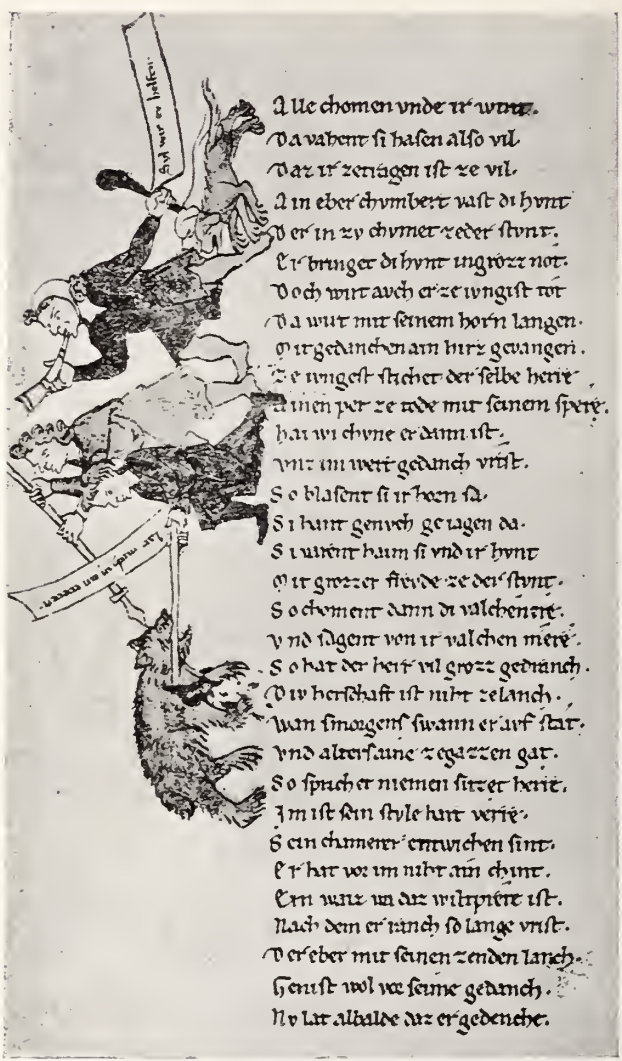 Sul wir ev helfen.
Alle chomen vnde ir wint.
Da vahent si hasen also vil.
Daz ir zetragen ist ze vil.
Ain eber chvmbert vast di hvnt
Der in zv chvmet zeder stvnt.
Er bringet di hvnt in grozz not.
Doch wirt avch er ze ivngist tot
Da wirt mit seinem horn langen.
Mit gedanchen ain hirz gevangen.
Ze ivngest stichet der selbe herre
Ainen per ze tode mit seinem spere.
hai wi chvne er dann ist.
vnz im wert gedanch vrist.
So blasent si ir horn sa.
Si hant genvch geiagen da.
Si varent haim si vnd ir hvnt
Mit grozzer frevde ze der stvnt.
So choment dann di valchenere.
vnd sagent von ir valchen mere.
So hat der herr vil grozz gedranch.
Div herschaft ist niht ze lanch.
wan smorgens swann er avf stat.
vnd altersaine ze gazzen gat.
So sprichet niemen sitzet herre.
Im ist sein stvle hart verre.
Sein chamerer entwichen sint.
Er hat vor im niht ain chint.
Ern waiz wa daz wiltpræte ist.
Nach dem er ranch so lange vrist.
Der eber mit seinen zenden lanch.
Genist wol vor seime gedanch.
Nv lat albalde daz er gedenche.
lat mich in an